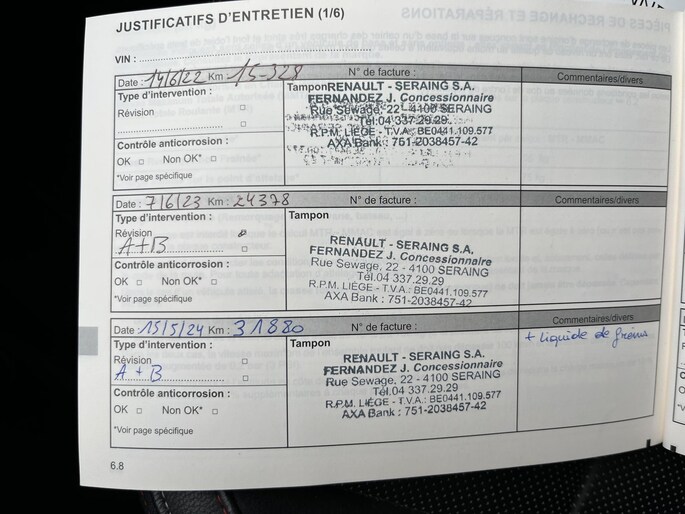 JUSTIFICATIFS D'ENTRETIEN (1/6)
VIN :
Date : 14/6/22 Km : 15-328 N° de facture : Commentaires/divers
Type d'intervention :
Révision
Contrôle anticorrosion :
OK □ Non OK* □
*Voir page spécifique
Tampon
RENAULT - SERAING S.A.
FERNANDEZ J. Concessionnaire
Rue Sewage, 22 - 4100 SERAING
Tél.04 337.29.29
R.P.M. LIÈGE - T.V.A.: BE0441.109.577
AXA Bank : 751-2038457-42
Date : 7/6/23 Km : 24378 N° de facture : Commentaires/divers
Type d'intervention :
Révision
A+B
Contrôle anticorrosion :
OK □ Non OK* □
*Voir page spécifique
Tampon
RENAULT - SERAING S.A.
FERNANDEZ J. Concessionnaire
Rue Sewage, 22 - 4100 SERAING
Tél.04 337.29.29
R.P.M. LIÈGE - T.V.A.: BE0441.109.577
AXA Bank : 751-2038457-42
Date : 15/5/24 Km : 31880 N° de facture : Commentaires/divers
Type d'intervention :
Révision
A + B
Contrôle anticorrosion :
OK □ Non OK* □
*Voir page spécifique
Tampon
RENAULT - SERAING S.A.
FERNANDEZ J. Concessionnaire
Rue Sewage, 22 - 4100 SERAING
Tél.04 337.29.29
R.P.M. LIÈGE - T.V.A.: BE0441.109.577
AXA Bank : 751-2038457-42
+ liquide de freins
6.8